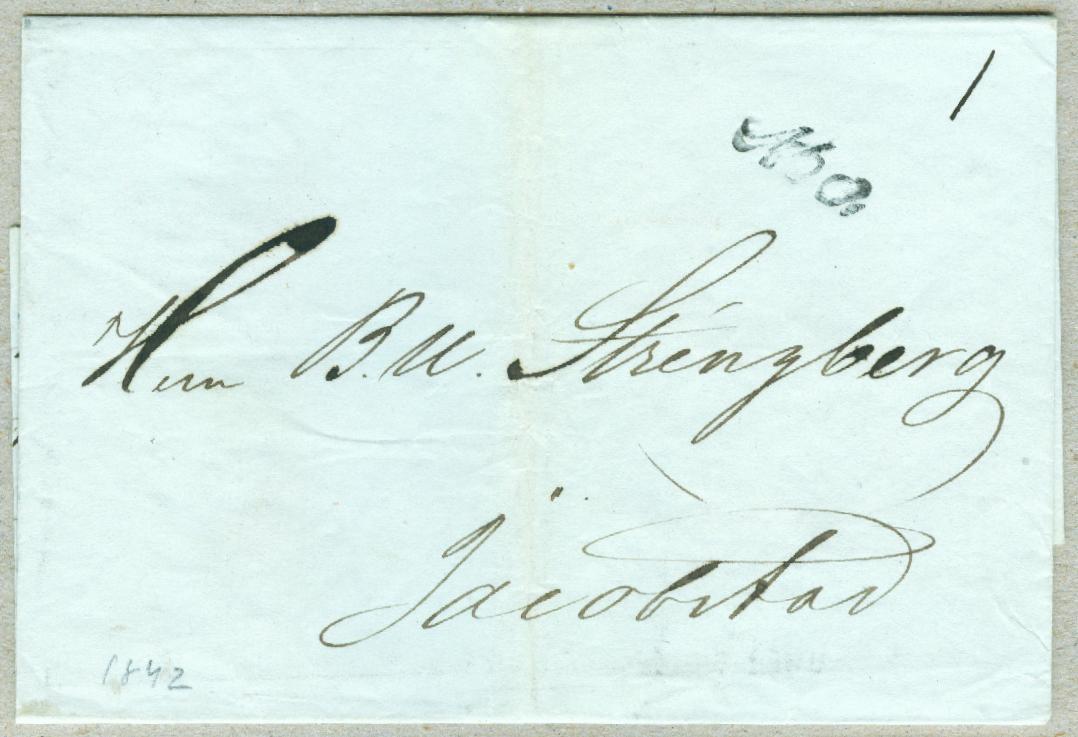 1
Abo.
Herrn B. U. Strengberg
Jacobstad
1842